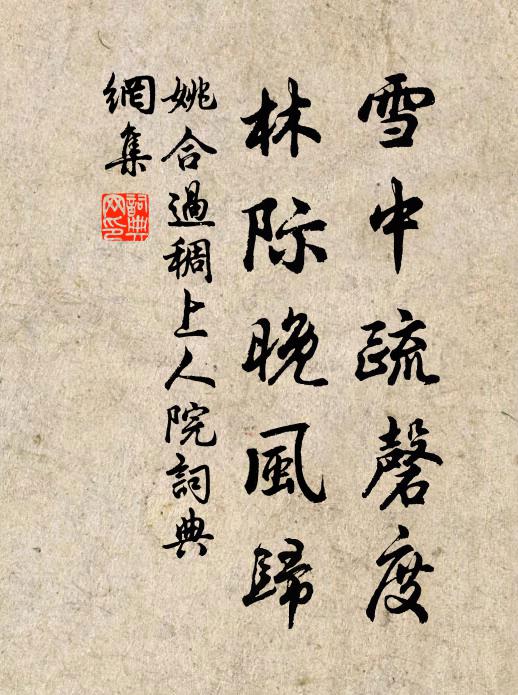 雪中疏磬度
林际晚風歸
姚合過稠上人院詞典
網集
詞典網印